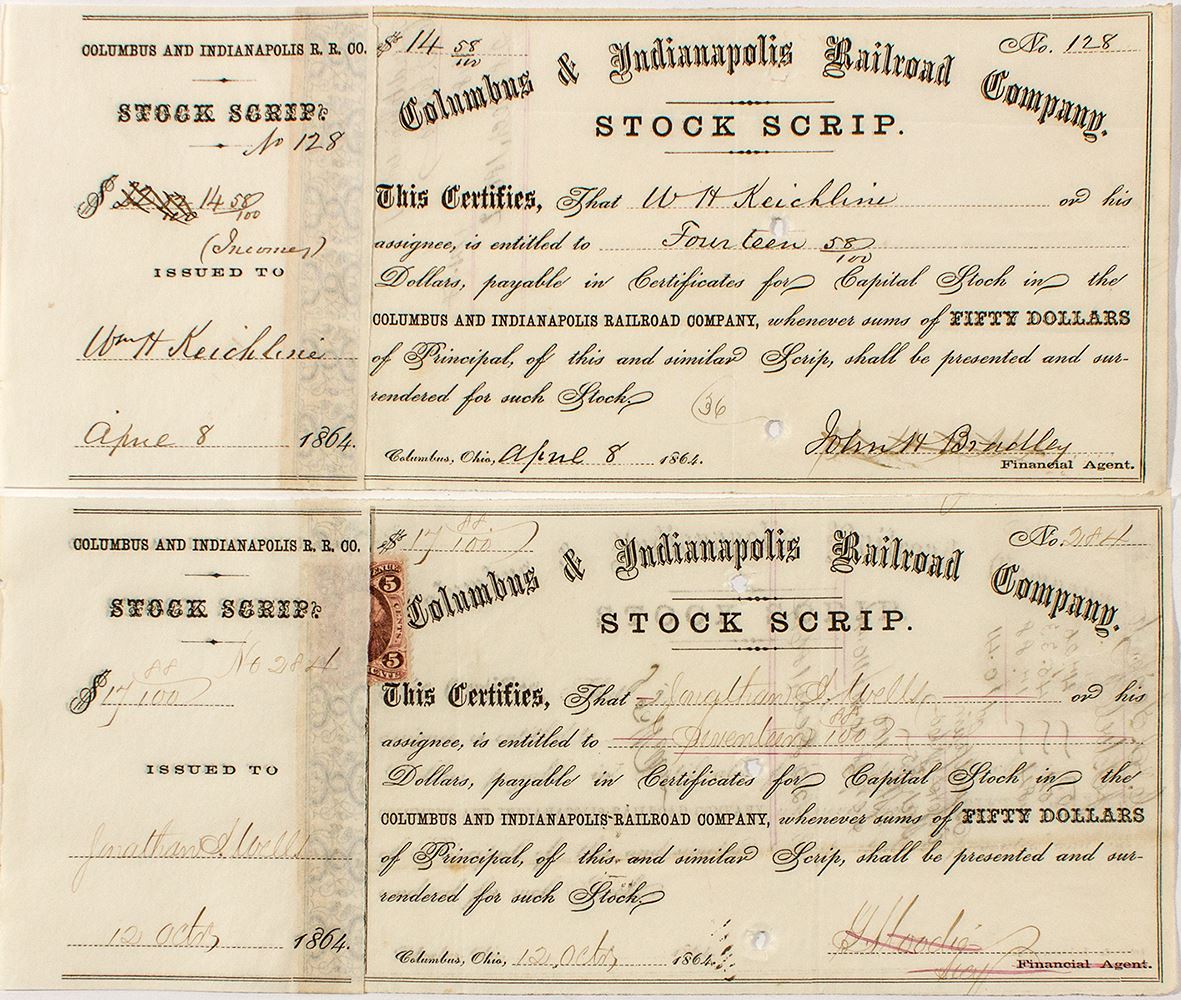 COLUMBUS AND INDIANAPOLIS R. R. CO.
STOCK SCRIP.
No 128
$ 14 58/100
(Income)
ISSUED TO
Wm H Keichline
April 8 1864.
$ 14 58/100
No. 128
Columbus & Indianapolis Railroad Company.
STOCK SCRIP.
This Certifies, That W H Keichline or his
assignee, is entitled to Fourteen 58/100
Dollars, payable in Certificates for Capital Stock in the
COLUMBUS AND INDIANAPOLIS RAILROAD COMPANY, whenever sums of FIFTY DOLLARS
of Principal, of this and similar Scrip, shall be presented and sur-
rendered for such Stock.
36
Columbus, Ohio, April 8 1864.
John H Bradley
Financial Agent.
COLUMBUS AND INDIANAPOLIS R. R. CO.
STOCK SCRIP.
No 284
$ 17 88/100
ISSUED TO
Jonathan S. Wells
12 Octr 1864.
$ 17 88/100
No. 284
5 CENTS 5
Columbus & Indianapolis Railroad Company.
STOCK SCRIP.
This Certifies, That Jonathan S. Wells or his
assignee, is entitled to Seventeen 88/100
Dollars, payable in Certificates for Capital Stock in the
COLUMBUS AND INDIANAPOLIS RAILROAD COMPANY, whenever sums of FIFTY DOLLARS
of Principal, of this and similar Scrip, shall be presented and sur-
rendered for such Stock.
Columbus, Ohio, 12 Octr 1864.
Financial Agent.